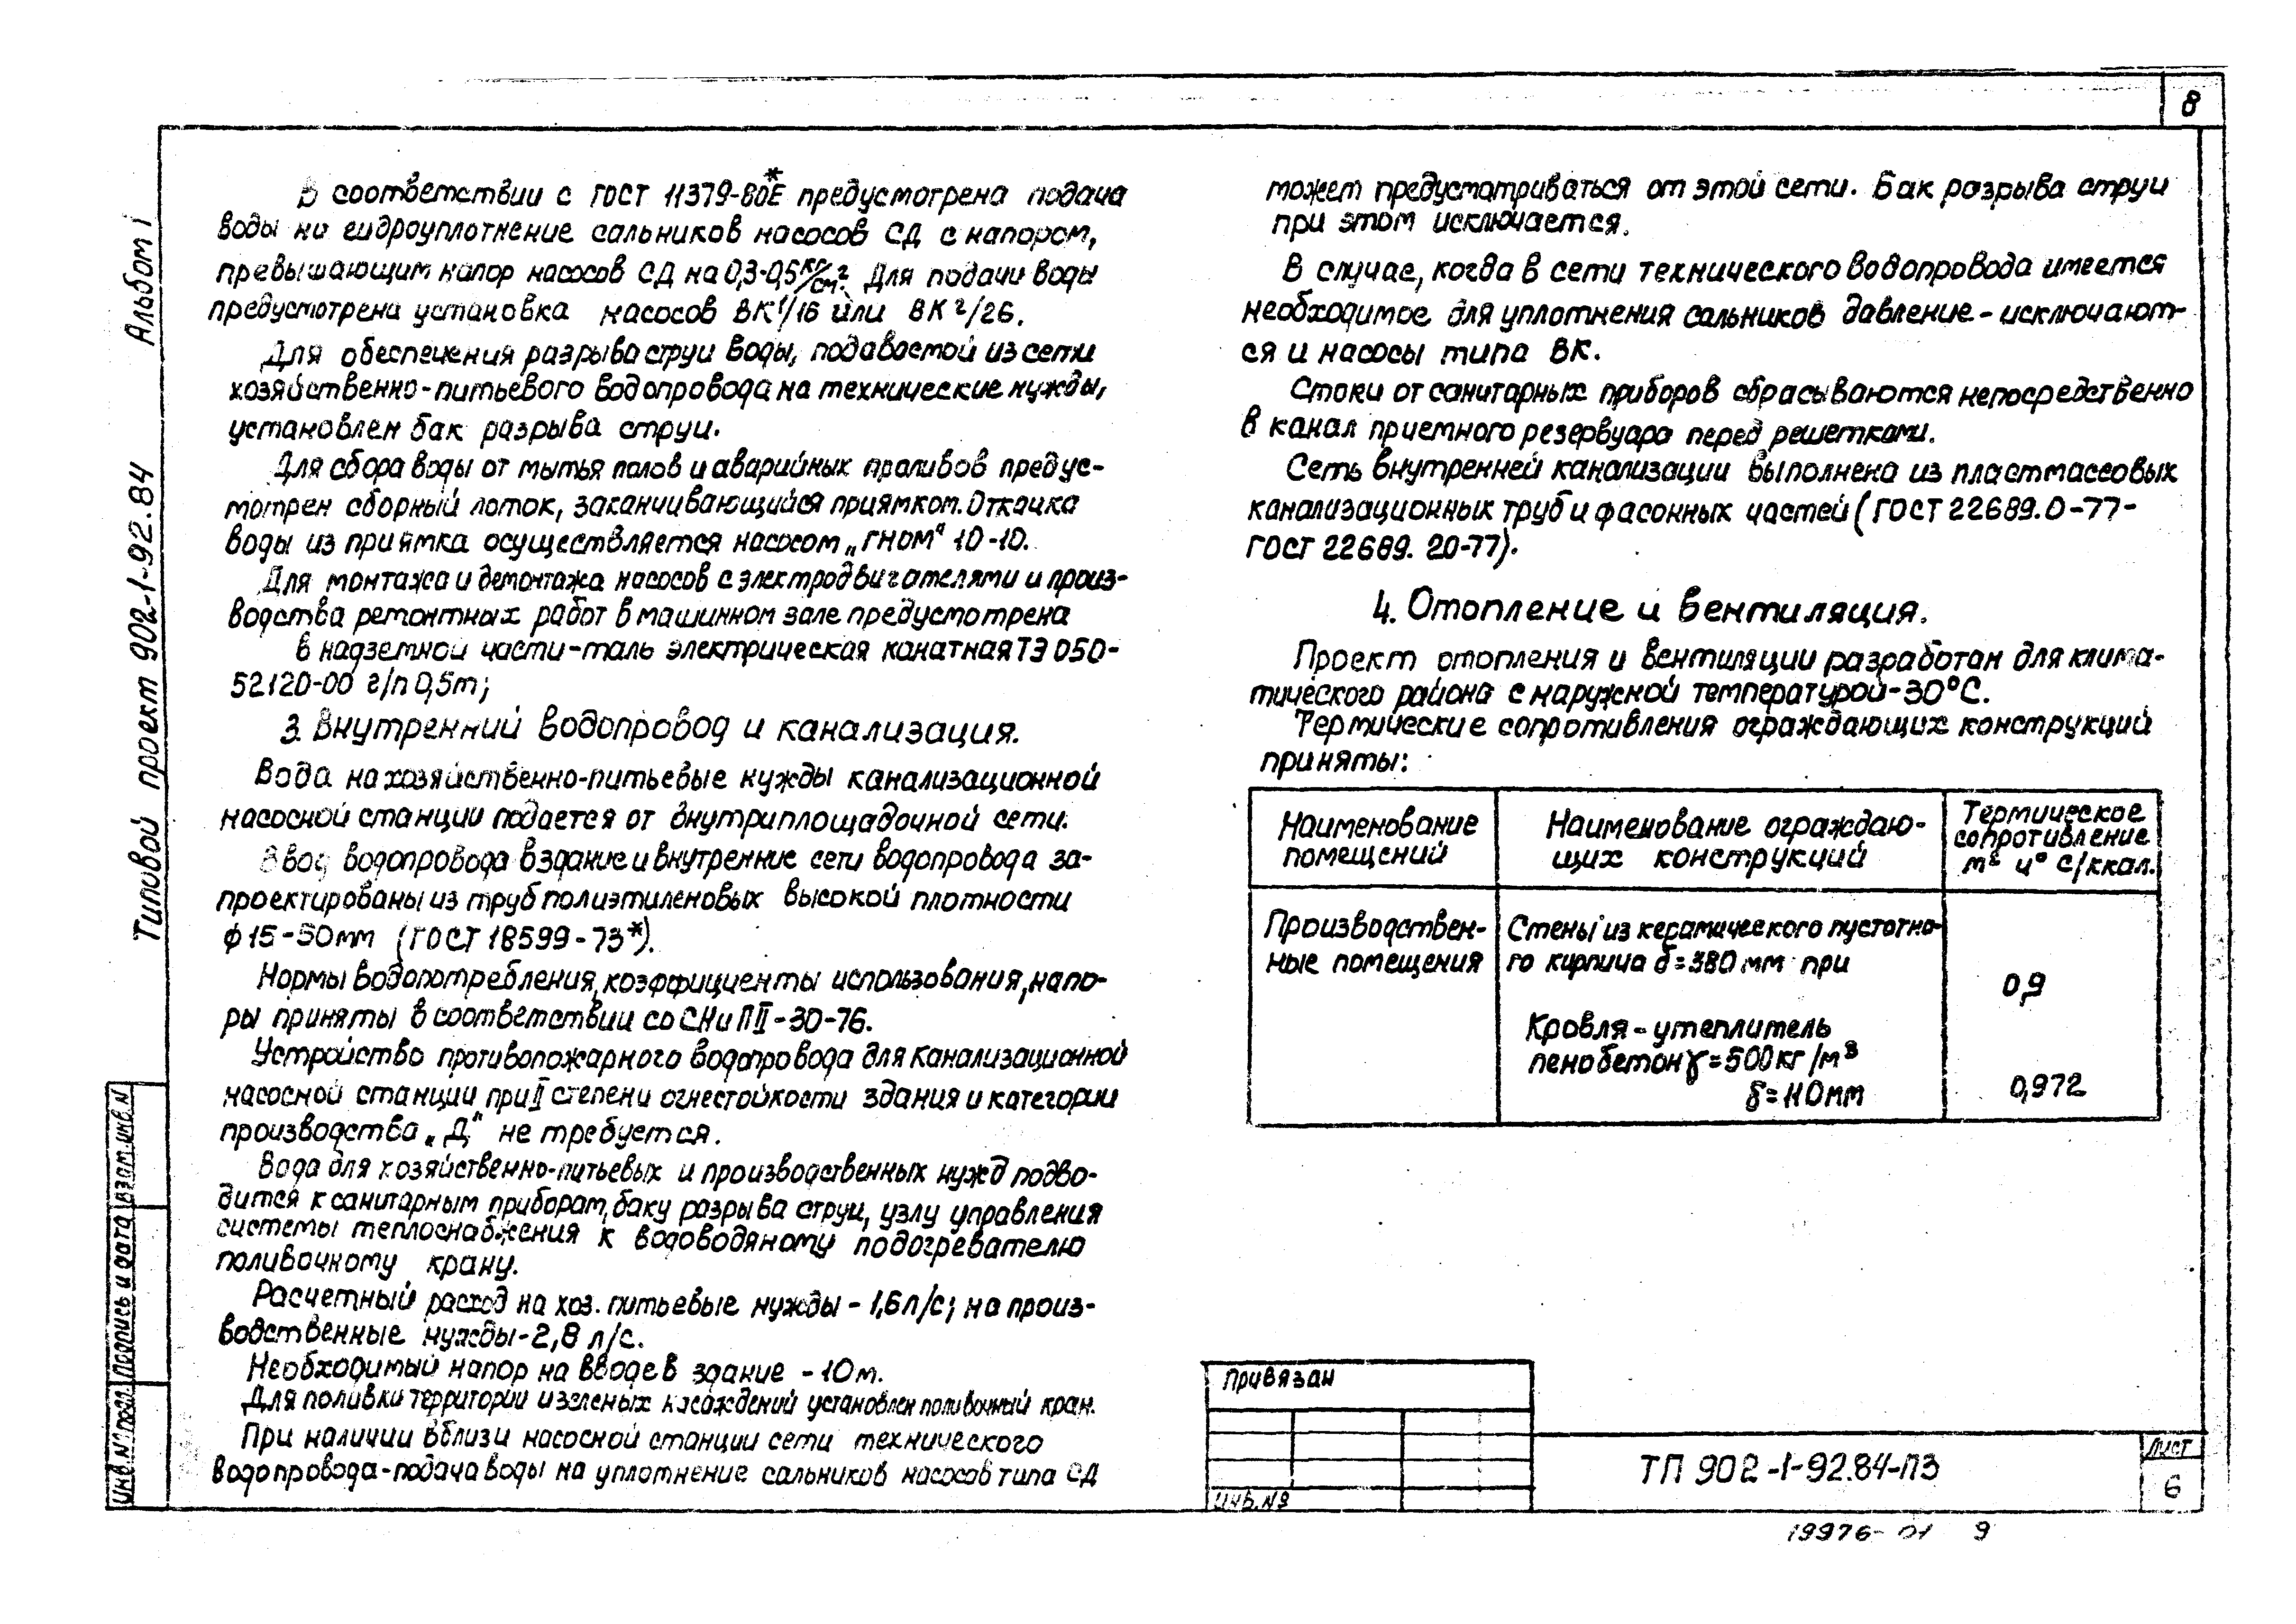 8
Альбом I
Типовой проект 902-1-92.84
В соответствии с ГОСТ 11379-80Е* предусмотрена подача
воды на гидроуплотнение сальников насосов СД с напором,
превышающим напор насосов СД на 0,3-0,5 кг/см². Для подачи воды
предусмотрена установка насосов ВК 1/16 или ВК 2/26.
Для обеспечения разрыва струи воды, подаваемой из сети
хозяйственно-питьевого водопровода на технические нужды,
установлен бак разрыва струи.
Для сбора воды от мытья полов и аварийных проливов предус-
мотрен сборный лоток, заканчивающийся приямком. Откачка
воды из приямка осуществляется насосом „ГНОМ“ 10-10.
Для монтажа и демонтажа насосов с электродвигателями и произ-
водства ремонтных работ в машинном зале предусмотрена
в надземной части-таль электрическая канатная ТЭ 050-
52120-00 г/п 0,5т;
3. Внутренний водопровод и канализация.
Вода на хозяйственно-питьевые нужды канализационной
насосной станции подается от внутриплощадочной сети.
Ввод водопровода в здание и внутренние сети водопровода за-
проектированы из труб полиэтиленовых высокой плотности
ф 15-50мм (ГОСТ 18599-73*).
Нормы водопотребления, коэффициенты использования, напо-
ры приняты в соответствии со СНиП II-30-76.
Устройство противопожарного водопровода для канализационной
насосной станции при II степени огнестойкости здания и категории
производства „Д“ не требуется.
Вода для хозяйственно-питьевых и производственных нужд подво-
дится к санитарным приборам, баку разрыва струи, узлу управления
системы теплоснабжения к водоводяному подогревателю
поливочному крану.
Расчетный расход на хоз. питьевые нужды - 1,6л/с; на произ-
водственные нужды-2,8 л/с.
Необходимый напор на вводе в здание - 10м.
Для поливки территории и зеленых насаждений установлен поливочный кран.
При наличии вблизи насосной станции сети технического
водопровода-подача воды на уплотнение сальников насосов типа СД
может предусматриваться от этой сети. Бак разрыва струи
при этом исключается.
В случае, когда в сети технического водопровода имеется
необходимое для уплотнения сальников давление - исключают-
ся и насосы типа ВК.
Стоки от санитарных приборов сбрасываются непосредственно
в канал приемного резервуара перед решетками.
Сеть внутренней канализации выполнена из пластмассовых
канализационных труб и фасонных частей (ГОСТ 22689.0-77-
ГОСТ 22689.20-77).
4. Отопление и вентиляция.
Проект отопления и вентиляции разработан для клима-
тического района с наружной температурой-30°С.
Термические сопротивления ограждающих конструкций
приняты:
Наименование
помещений
Наименование ограждаю-
щих конструкций
Термическое
сопротивление
м² ч° С/ккал.
Производствен-
ные помещения
Стены из керамического пустотно-
го кирпича δ=380мм при
0,9
Кровля - утеплитель
пенобетон γ=500кг/м³
δ=110мм
0,972
Взам.инв.N
Подпись и дата
Инв.N°подл.
Привязан
Инв.№
ТП 902-1-92.84-ПЗ
Лист
6
19976-01 9